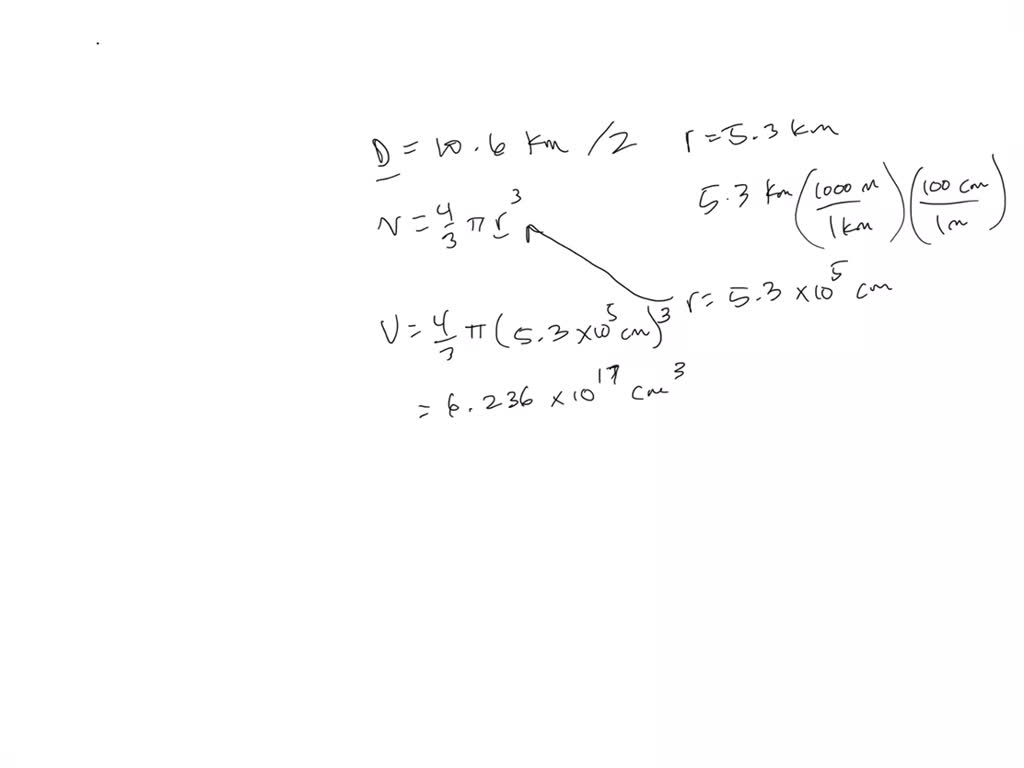 D = 10.6 km /2 r = 5.3 km
5.3 km (1000 m / 1 km) (100 cm / 1 m)
V = 4/3 π r³
r = 5.3 × 10⁵ cm
V = 4/3 π (5.3 × 10⁵ cm)³
= 6.236 × 10¹⁷ cm³